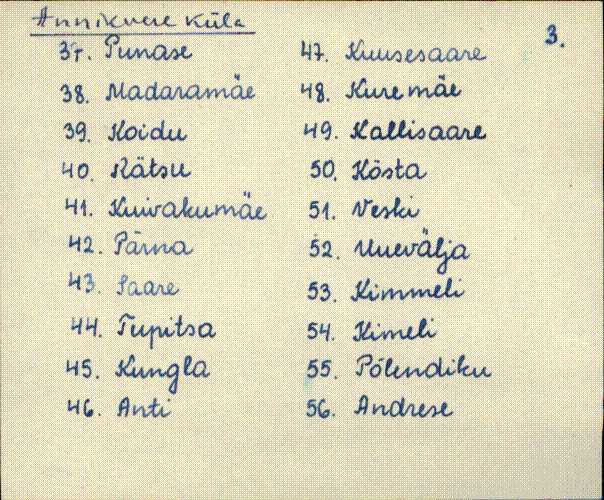 Annikvere küla
3.
37. Punase
38. Madaramäe
39. Koidu
40. Kätsu
41. Kuivakumäe
42. Pärna
43. Saare
44. Tupitsa
45. Kungla
46. Anti
47. Kuusesaare
48. Kuremäe
49. Kallisaare
50. Kösta
51. Veski
52. Uuevälja
53. Kimmeli
54. Kimeli
55. Põlendiku
56. Andrese